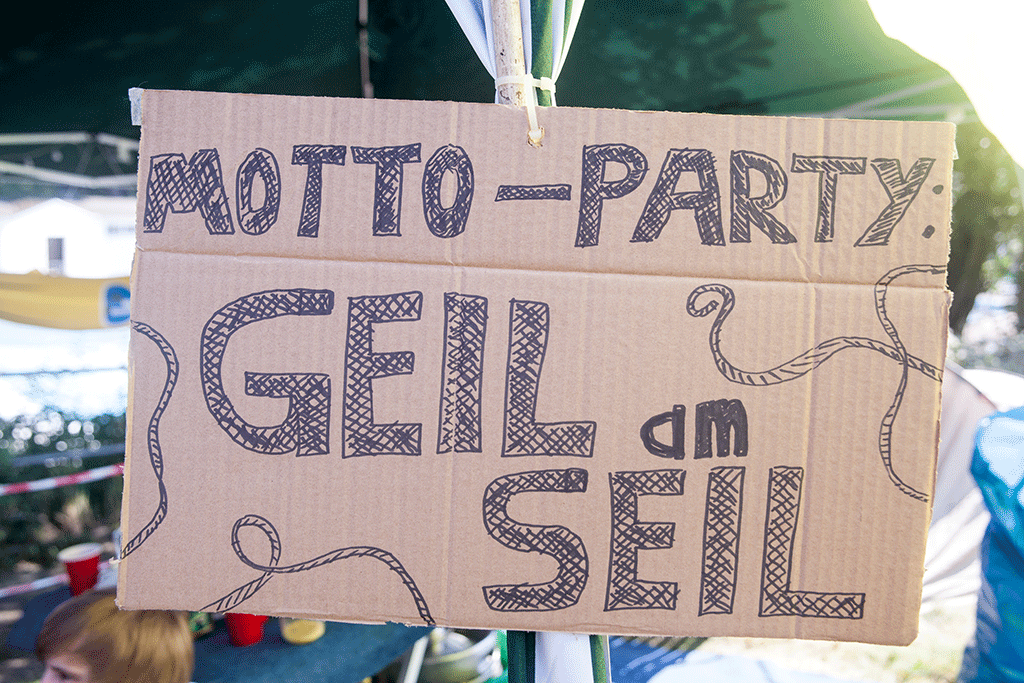 MOTTO-PARTY:
GEIL am
SEIL